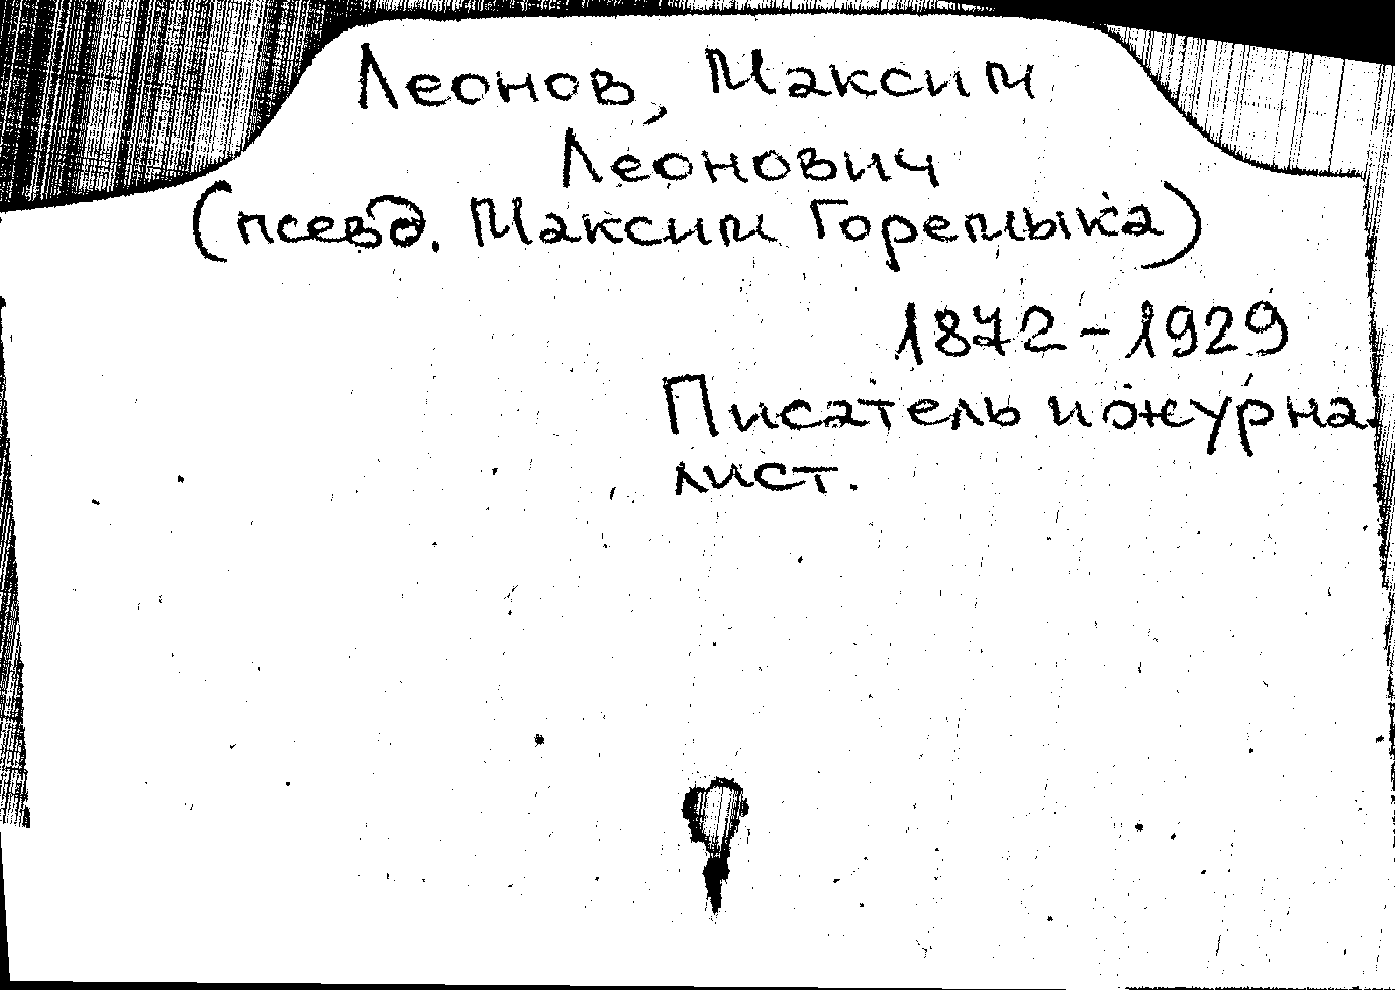 Леонов, Максим
Леонович
(псевд. Максим Горемыка)
1872-1929
Писатель и журна-
лист.